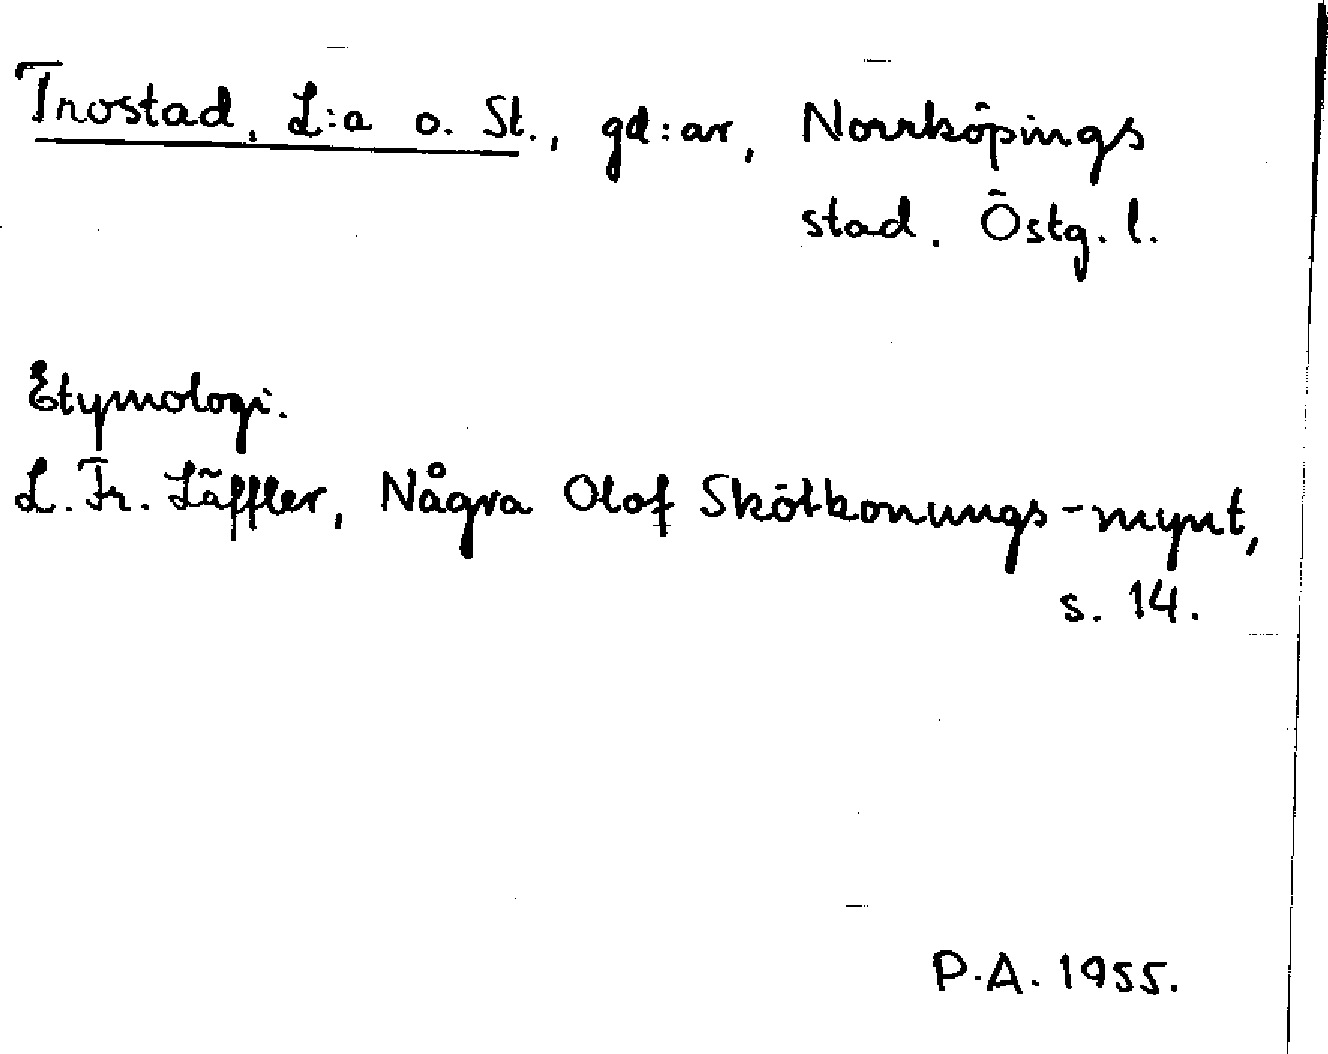 Trostad, L:a o. St., gd:ar, Norrköpings
stad. Östg. l.
Etymologi.
L. Fr. Läffler, Några Olof Skötkonungs-mynt,
s. 14.
P.A. 1955.